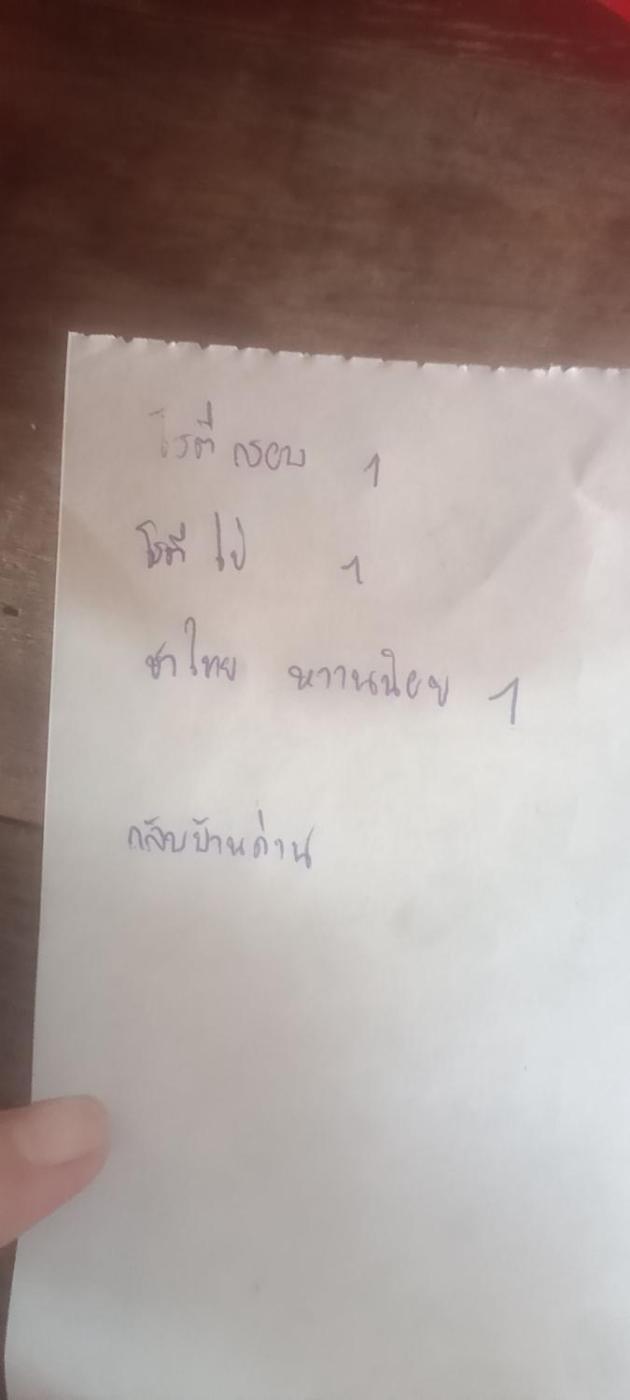 โรตี กรอบ 1
โรตี ไข่ 1
ชาไทย หวานน้อย 1
กลับบ้านด่าน